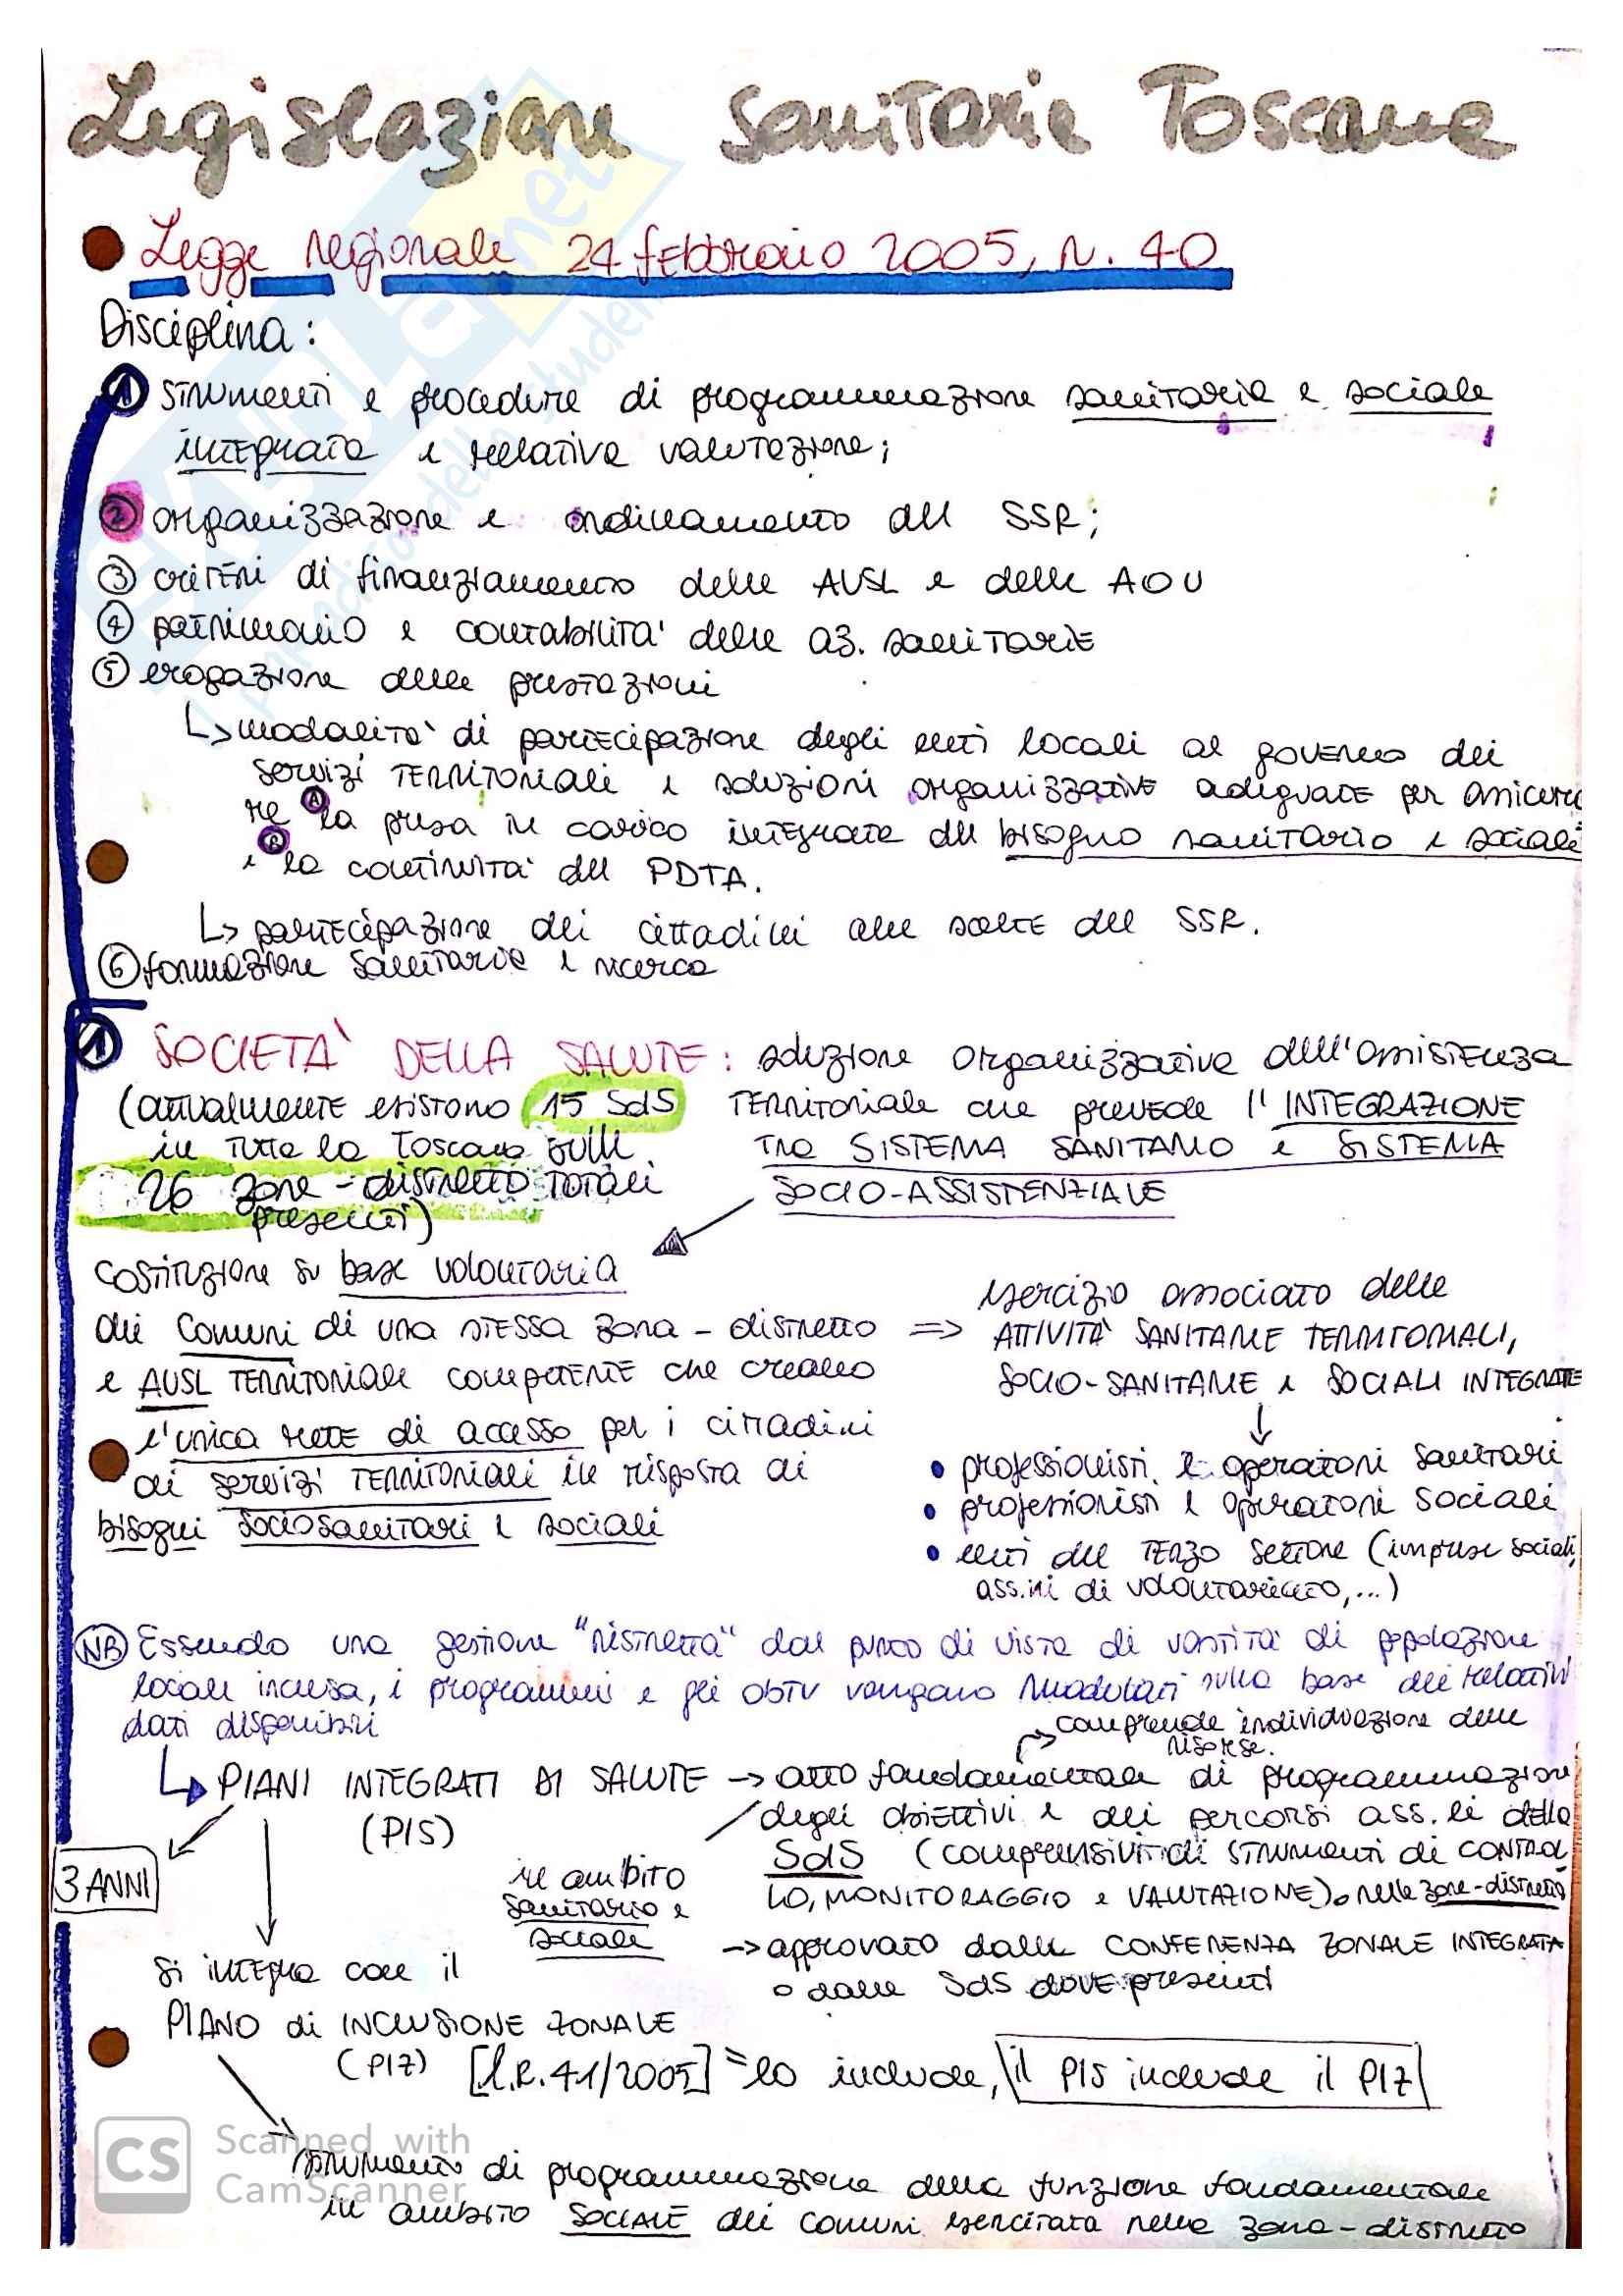 Legislazione Sanitaria Toscana
Legge regionale 24 febbraio 2005, n. 40
Disciplina:
① strumenti e procedure di programmazione sanitaria e sociale
integrata e relativa valutazione;
② organizzazione e ordinamento del SSR;
③ criteri di finanziamento delle AUSL e delle AOU
④ patrimonio e contabilità delle az. sanitarie
⑤ erogazione delle prestazioni
↳ modalità di partecipazione degli enti locali al governo dei
servizi territoriali e soluzioni organizzative adeguate per assicura
re Ⓐ la presa in carico integrata del bisogno sanitario e sociale
e Ⓑ la continuità del PDTA.
↳ partecipazione dei cittadini alle scelte del SSR.
⑥ formazione sanitaria e ricerca
① SOCIETÀ DELLA SALUTE: soluzione organizzativa dell'assistenza
(attualmente esistono 15 SdS territoriale che prevede l'INTEGRAZIONE
in tutta la Toscana sulle TRA SISTEMA SANITARIO e SISTEMA
26 zone-distretto totali SOCIO-ASSISTENZIALE
presenti)
costituzione su base volontaria
dei Comuni di una stessa zona-distretto => esercizio associato delle
e AUSL territoriale competente che creano ATTIVITÀ SANITARIE TERRITORIALI,
l'unica rete di accesso per i cittadini SOCIO-SANITARIE e SOCIALI INTEGRATE
ai servizi territoriali in risposta ai
bisogni sociosanitari e sociali
• professionisti e operatori sanitari
• professionisti e operatori sociali
• enti del terzo settore (imprese sociali,
ass.ni di volontariato,...)
NB Essendo una gestione "ristretta" dal punto di vista di vastità di popolazione
locale inclusa, i programmi e gli obtv vengono modulati sulla base dei relativi
dati disponibili
comprende individuazione delle
risorse.
↳ PIANI INTEGRATI DI SALUTE → atto fondamentale di programmazione
(PIS) degli obiettivi e dei percorsi ass.li della
SdS (comprensivi di strumenti di CONTROL
LO, MONITORAGGIO e VALUTAZIONE) o nelle zone-distretto
3 ANNI
in ambito
sanitario e
sociale
→ approvato dalla CONFERENZA ZONALE INTEGRATA
o dalle SdS dove presenti
si integra con il
PIANO di INCLUSIONE ZONALE
(PIZ) [l.R. 41/2005] = lo include, il PIS include il PIZ
strumento di programmazione della funzione fondamentale
in ambito SOCIALE dei comuni esercitata nella zona-distretto
CS Scanned with
CamScanner